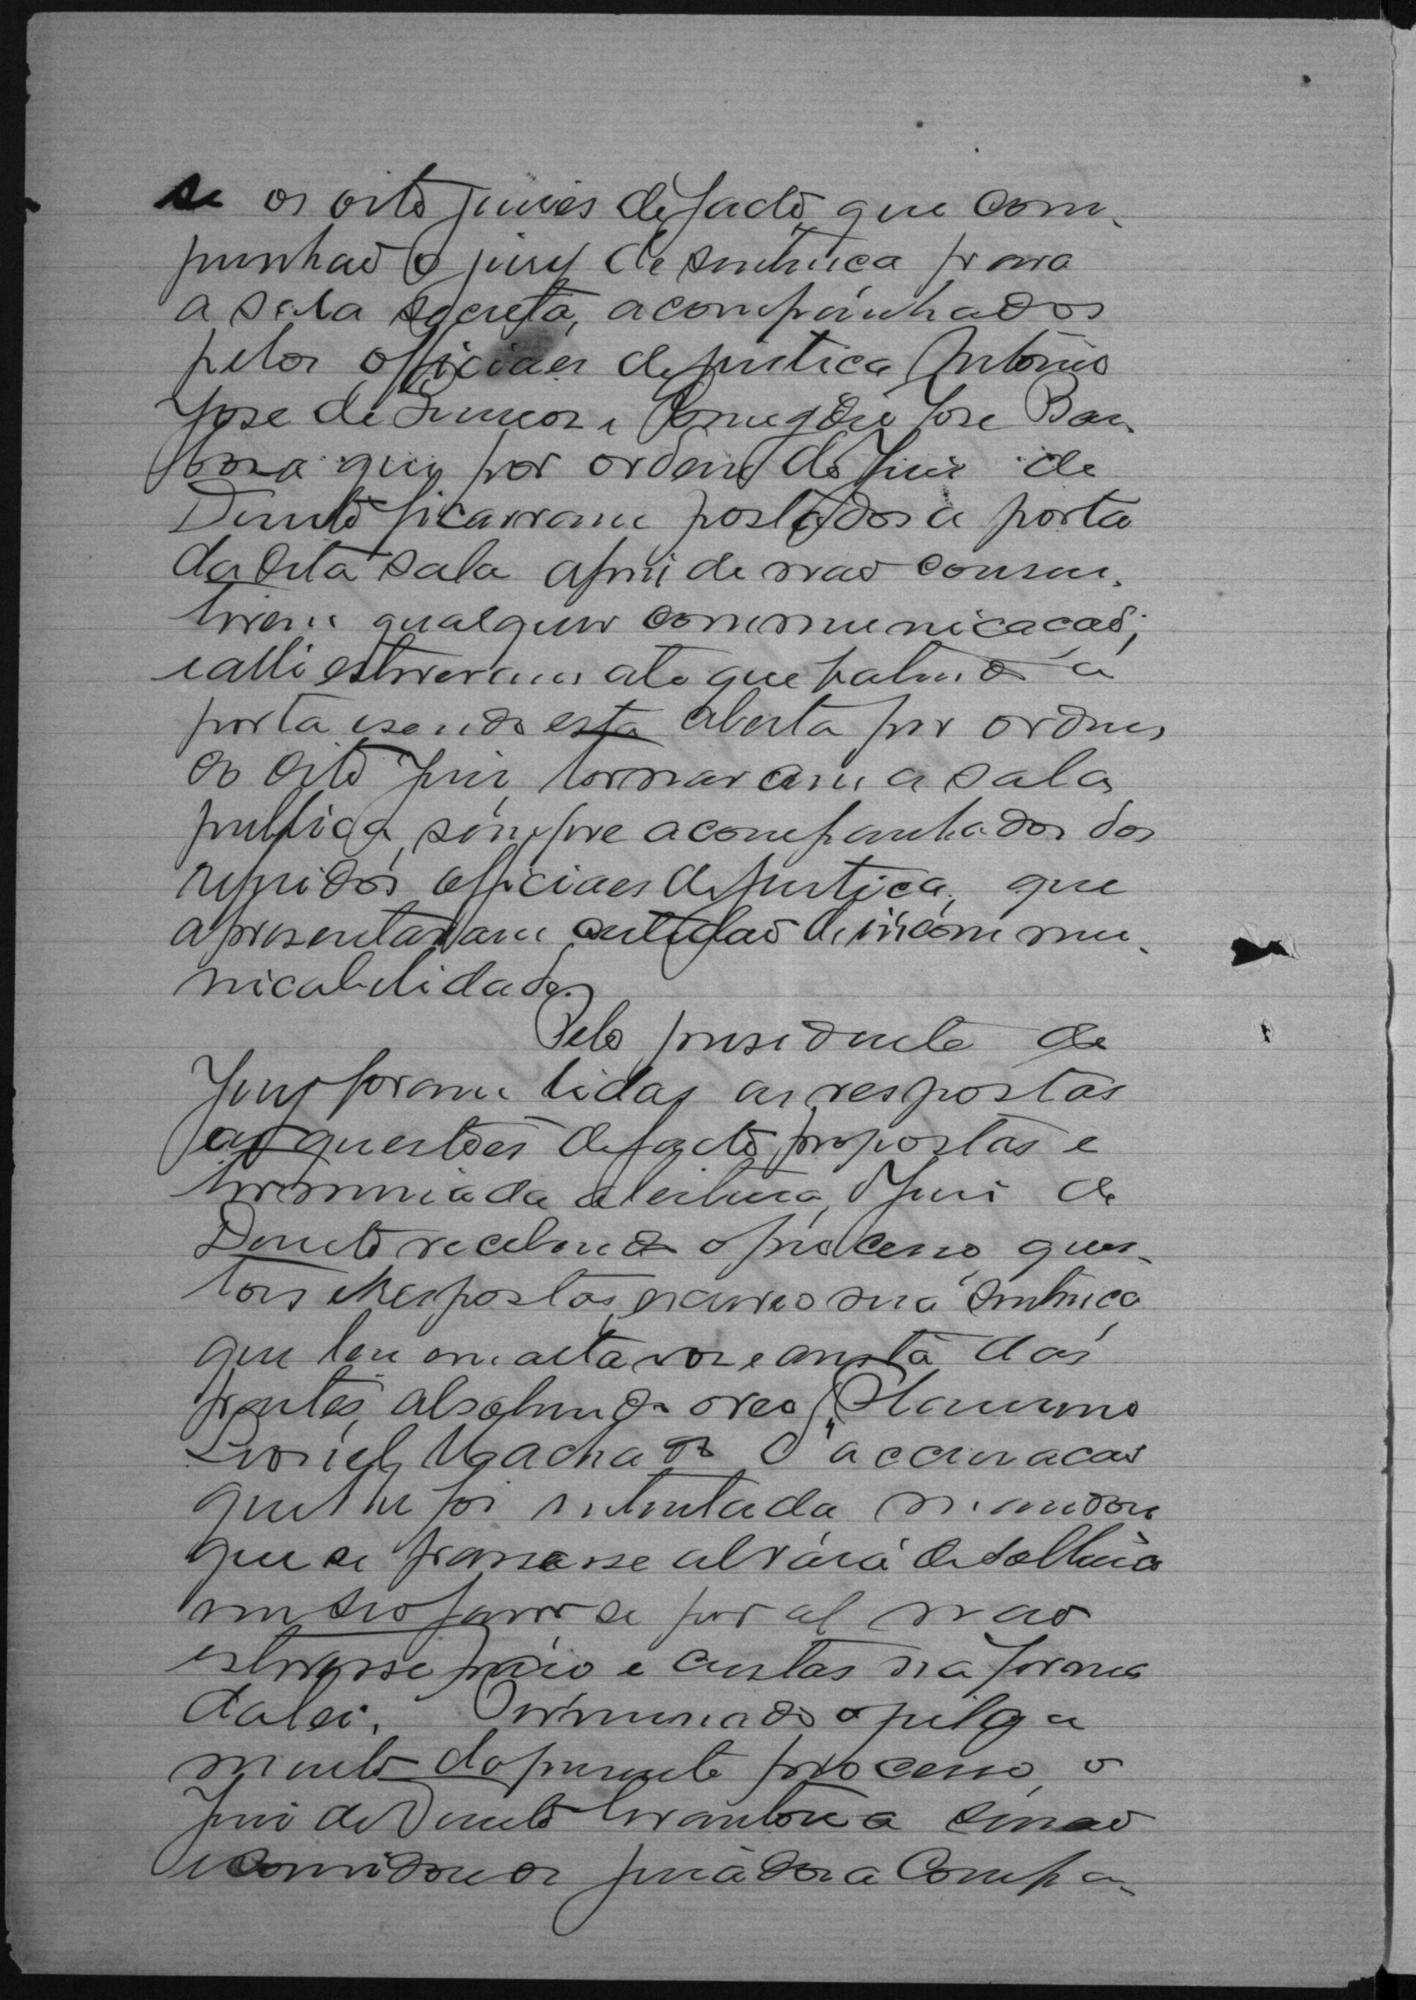 se os oito juizes de facto que com-
punhaõ o jury de sentença para
a sala secreta, acompanhados
pelos officiaes de justiça Antonio
José de e José Bar-
boza que por ordem do Juiz de
Direito ficarram postados a porta
da dita sala afim de naõ consen-
tirem qualquer communicaçaõ;
e alli estiveram até que batendo a
porta e sendo esta aberta por ordem
do dito Juiz, tornaram a sala
publica, sempre acompanhados dos
referidos officiaes de justiça, que
apresentaram certidaõ de incommu-
nicabilidade.
Pelo presidente do
Jury foram lidas as respostas
as questões de facto propostas e
terminada a leitura, o Juiz de
Direito recebendo o processo, ques-
tões e respostas, escreveo sua sentença
que leu em alta voz e perante das
partes, absolvendo o reo
Leoniel Machado d'accusaçaõ
que lhe foi intentada e mandou
que se passasse alvará de soltura
em seo favor se por al naõ
estivesse prezo e custas na forma
da lei. Terminado o julga
mento do presente processo, o
Juiz de Direito levantou a sessaõ
e convidou os jurados a compa-